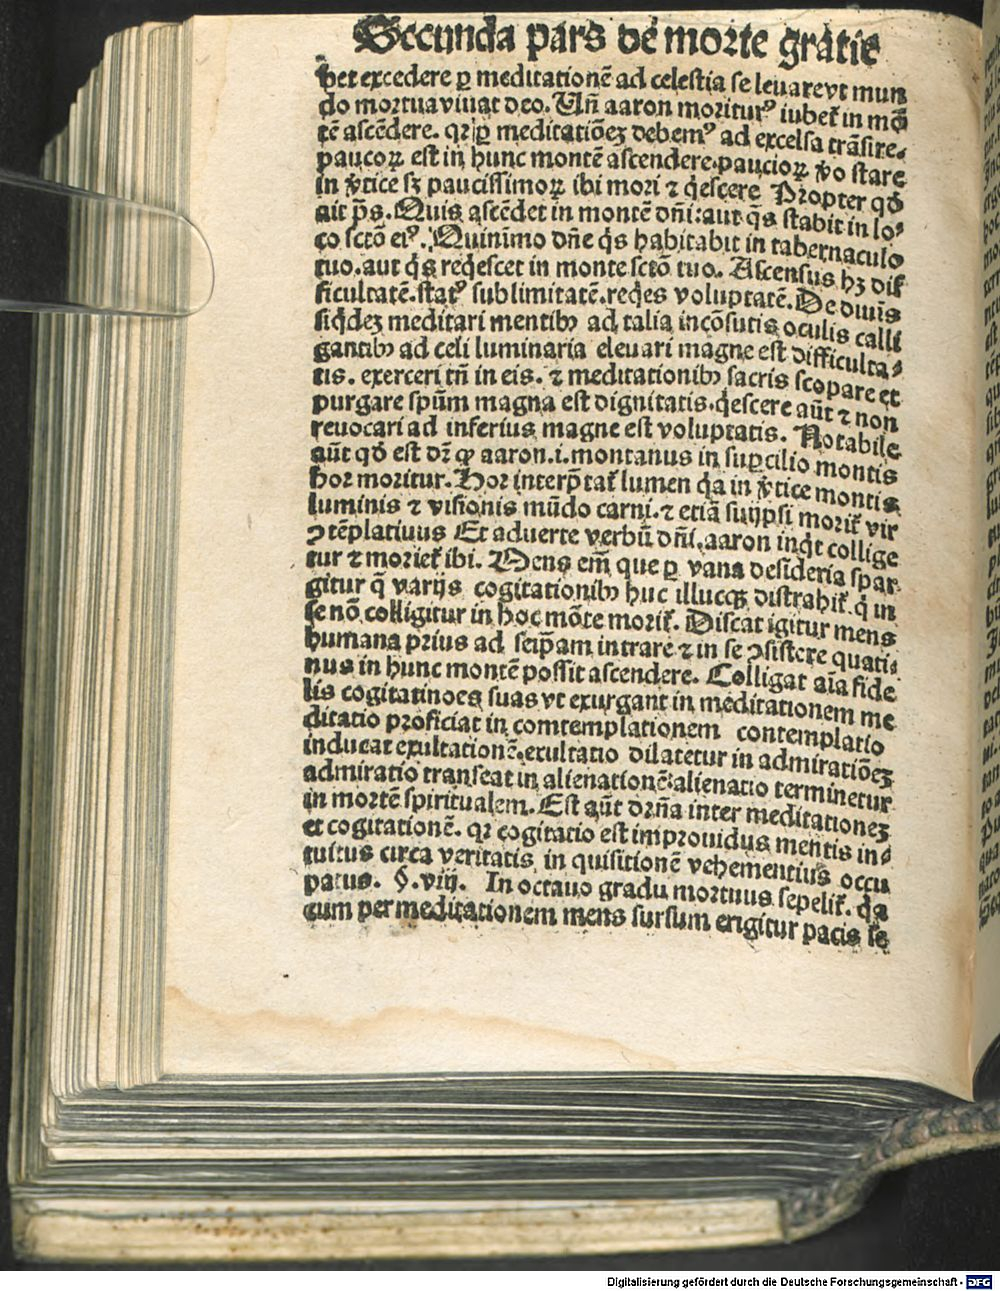 Secunda pars de morte gratie
bet excedere ꝑ meditationē ad celestia se leuare vt mun
do mortua viuat deo. Vñ aaron moriturꝰ iubet᷑ in mō
tē ascēdere. qꝛ ꝑ meditatiōeꝫ debemꝰ ad excelsa trāsire.
paucoꝝ est in hunc montē ascendere. paucioꝝ v̊o stare
in v̊tice sꝫ paucissimoꝝ ibi mori ⁊ q̇escere Propter qd̄
ait ꝓs. Quis ascēdet in montē dñi: aut q̇s stabit in lo⸗
co sctō eiꝰ. Quinimo dñe q̇s habitabit in tabernaculo
tuo. aut q̇s req̇escet in monte sctō tuo. Ascensus hꝫ dif
ficultatē. statꝰ sublimitatē. req̇es voluptatē. De diuis̄
siq̇deꝫ meditari mentibꝫ ad talia incōsutis oculis calli
gantibꝫ ad celi luminaria eleuari magne est difficulta⸗
tis. exerceri tñ in eis. ⁊ meditationibꝫ sacris scopare et
purgare spūm magna est dignitatis. q̇escere aūt ⁊ non
reuocari ad inferius magne est voluptatis. Notabile
aūt qd̄ est dꝛ̄ ꝙ aaron .i. montanus in suꝑcilio montis
hor moritur. Hor interp̄tat᷑ lumen q̇a in v̊tice montis
luminis ⁊ visionis mūdo carni. ⁊ etiā suijpsi morit᷑ vir
ꝯtēplatiuus Et aduerte verbū dñi. aaron inq̇t collige
tur ⁊ moriet᷑ ibi. Mens em̄ que ꝑ vana desideria spar
gitur q̄ varijs cogitationibꝫ huc illucqꝫ distrahit᷑. q̇ in
se nō colligitur in hoc mōte morit᷑. Discat igitur mens
humana prius ad seip̄am intrare ⁊ in se ꝯsistere quati⸗
nus in hunc montē possit ascendere. Colligat aīa fide
lis cogitatinoes suas vt exurgant in meditationem me
ditatio proficiat in comtemplationem contemplatio
inducat exultationē. exultatio dilatetur in admiratiōeꝫ
admiratio transeat in alienationē: alienatio terminetur
in mortē spiritualem. Est aūt drña inter meditationeꝫ
et cogitationē. qꝛ cogitatio est improuidus mentis in⸗
tuitus circa veritatis in quisitionē vehementius occu
patus. §. viij. In octauo gradu mortuus sepelit᷑. q̇a
cum per meditationem mens sursum erigitur pacis se
Digitalisierung gefördert durch die Deutsche Forschungsgemeinschaft - DFG